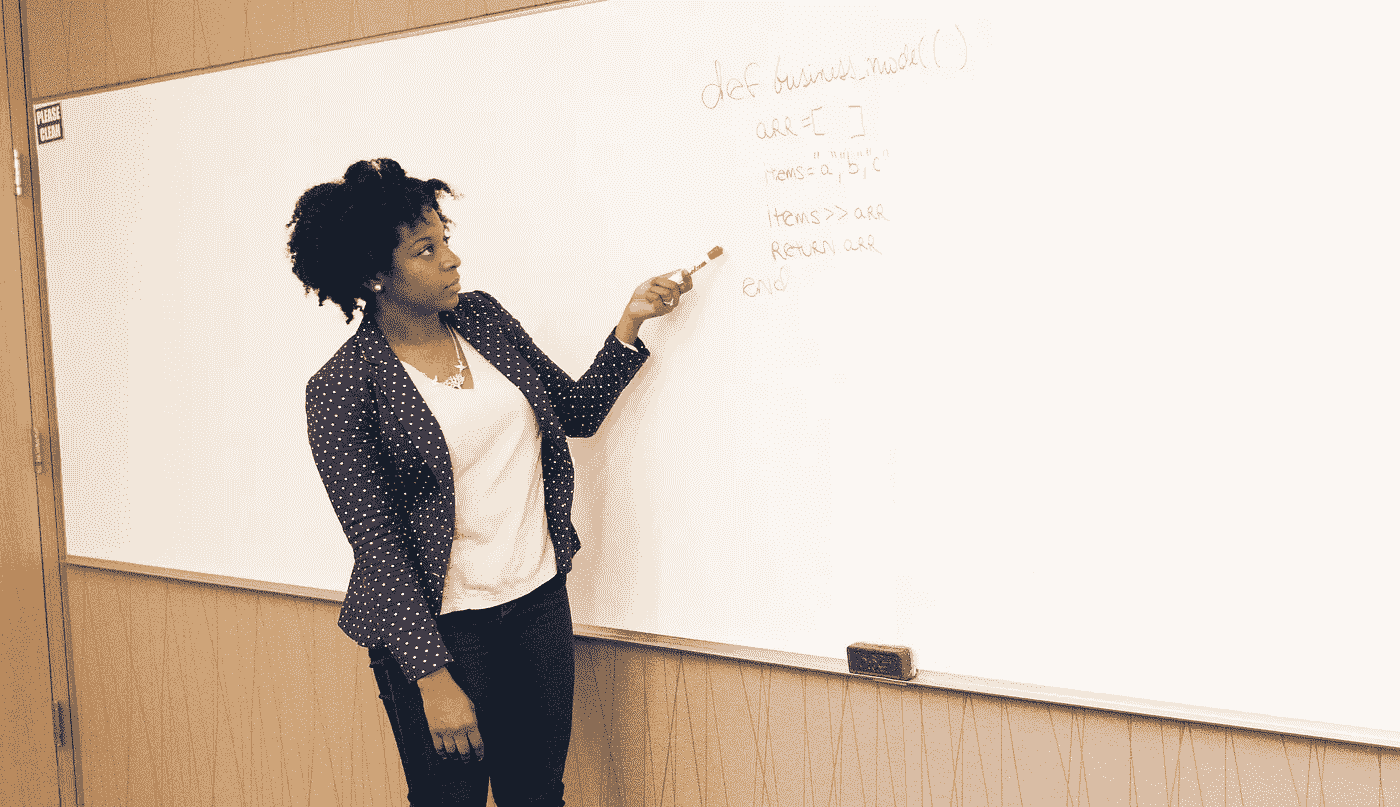 PLEASE
CLEAN
def business_model( )
arr=[ ]
items="a","b","c"
items>> arr
Return arr
end